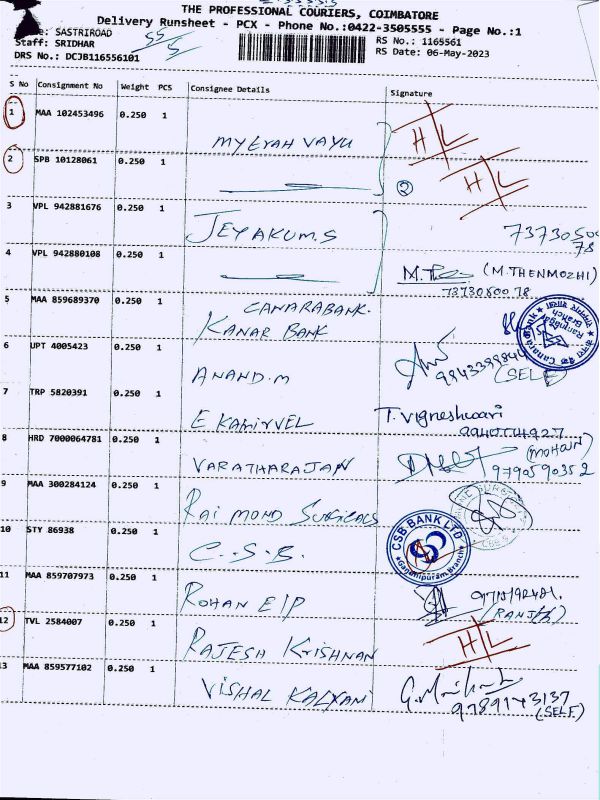 THE PROFESSIONAL COURIERS, COIMBATORE
Delivery Runsheet - PCX - Phone No.:0422-3505555 - Page No.:1
e: SASTRIROAD
Staff: SRIDHAR
DRS No.: DCJB116556101
RS No.: 1165561
RS Date: 06-May-2023
S No Consignment No Weight PCS Consignee Details Signature
1 MAA 102453496 0.250 1 H/L
MYLYAH VAYU
2 SPB 10128061 0.250 1 ② H/L
3 VPL 942881676 0.250 1
JEYAKUM.S 73730500
78
4 VPL 942880108 0.250 1
(M.THENMOZHI)
7373050078
5 MAA 859689370 0.250 1
CANARABANK.
KANAR BANK
Canara Bank
Ramnagar
Branch
6 UPT 4005423 0.250 1
ANAND.M (SELF)
7 TRP 5820391 0.250 1
E KAMIRVEL T. Vigneshwari
8 HRD 7000064781 0.250 1
VARATHARAJAN (MOHAN)
9790590352
9 MAA 300284124 0.250 1
RAI MOND SURGICALS
10 STY 86938 0.250 1
C.S.B.
CSB BANK LTD
Gandhipuram Branch
11 MAA 859707973 0.250 1
ROHAN E/P
12 TVL 2584007 0.250 1
RAJESH KRISHNAN H/L
13 MAA 859577102 0.250 1
VISHAL KALYANI
9789143137
(SELF)